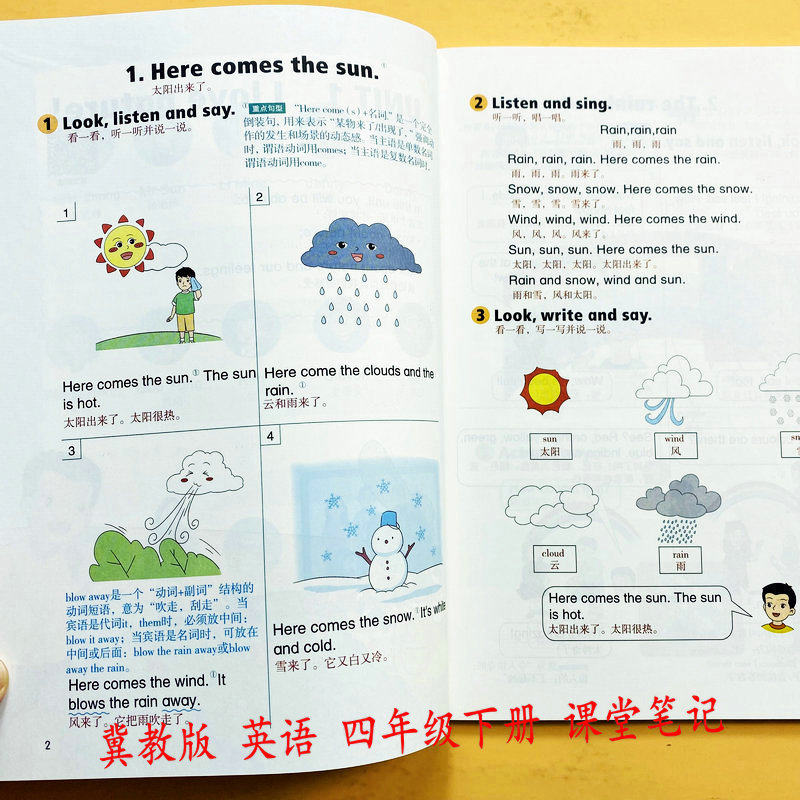 1. Here comes the sun.①
太阳出来了。
1 Look, listen and say.
看一看，听一听并说一说。
① 重点句型 “Here come（s）+名词”是一个完全
倒装句，用来表示“某物来了/出现了。”强调动
作的发生和场景的动态感。当主语是单数名词
时，谓语动词用comes；当主语是复数名词时，
谓语动词用come。
1
Here comes the sun.① The sun
is hot.
太阳出来了。太阳很热。
2
Here come the clouds and the
rain.①
云和雨来了。
3
blow away是一个“动词+副词”结构的
动词短语，意为“吹走，刮走”。当
宾语是代词it，them时，必须放中间：
blow it away；当宾语是名词时，可放在
中间或后面：blow the rain away或blow
away the rain。
Here comes the wind.①It
blows the rain away.
风来了。它把雨吹走了。
4
Here comes the snow.①It's white
and cold.
雪来了。它又白又冷。
2
2 Listen and sing.
听一听，唱一唱。
Rain,rain,rain
雨，雨，雨
Rain, rain, rain. Here comes the rain.
雨，雨，雨。雨来了。
Snow, snow, snow. Here comes the snow.
雪，雪，雪。雪来了。
Wind, wind, wind. Here comes the wind.
风，风，风。风来了。
Sun, sun, sun. Here comes the sun.
太阳，太阳，太阳。太阳出来了。
Rain and snow, wind and sun.
雨和雪，风和太阳。
3 Look, write and say.
看一看，写一写并说一说。
sun
太阳
wind
风
sn
cloud
云
rain
雨
Here comes the sun. The sun
is hot.
太阳出来了。太阳很热。
冀教版 英语 四年级下册 课堂笔记